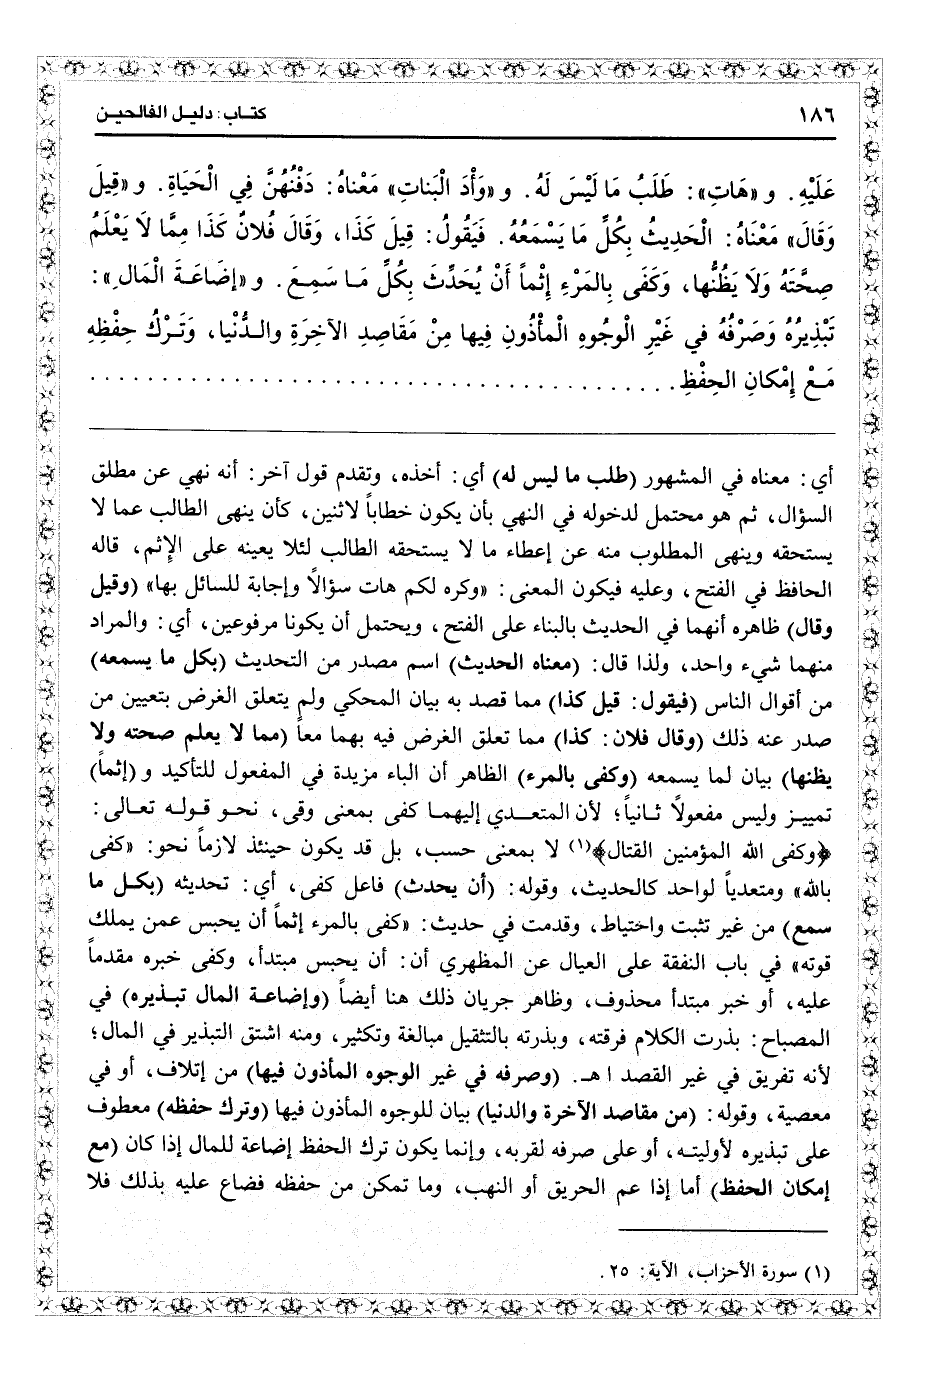 ١٨٦ كتاب: دليل الفالحين
عَلَيْهِ. و «هَاتِ»: طَلَبُ مَا لَيْسَ لَهُ. و «وَأْدَ الْبَناتِ» مَعْناهُ: دَفْنُهُنَّ فِي الْحَيَاةِ. و «قِيلَ
وَقَالَ» مَعْنَاهُ: الْحَدِيثُ بِكُلِّ مَا يَسْمَعُهُ. فَيَقُولُ: قِيلَ كَذَا، وَقَالَ فُلانٌ كَذَا مِمَّا لَا يَعْلَمُ
صِحَّتَهُ وَلَا يَظُنُّها، وَكَفَى بِالمَرْءِ إِثْماً أَنْ يُحَدِّثَ بِكُلِّ مَا سَمِعَ. و «إضَاعَةَ الْمَالِ»:
تَبْذِيرُهُ وَصَرْفُهُ في غَيْرِ الْوجُوهِ الْمأْذُونِ فِيها مِنْ مَقَاصِدِ الآخِرَةِ والدُّنْيا، وَتَرْكُ حِفْظِهِ
مَعْ إمْكانِ الحِفْظِ. . . . . . . . . . . . . . . . . . . . . . . . . . . . . . . . . . .
أي: معناه في المشهور (طلب ما ليس له) أي: أخذه، وتقدم قول آخر: أنه نهي عن مطلق
السؤال، ثم هو محتمل لدخوله في النهي بأن يكون خطاباً لاثنين، كأن ينهى الطالب عما لا
يستحقه وينهى المطلوب منه عن إعطاء ما لا يستحقه الطالب لئلا يعينه على الإثم، قاله
الحافظ في الفتح، وعليه فيكون المعنى: «وكره لكم هات سؤالاً وإجابة للسائل بها» (وقيل
وقال) ظاهره أنهما في الحديث بالبناء على الفتح، ويحتمل أن يكونا مرفوعين، أي: والمراد
منهما شيء واحد، ولذا قال: (معناه الحديث) اسم مصدر من التحديث (بكل ما يسمعه)
من أقوال الناس (فيقول: قيل كذا) مما قصد به بيان المحكي ولم يتعلق الغرض بتعيين من
صدر عنه ذلك (وقال فلان: كذا) مما تعلق الغرض فيه بهما معاً (مما لا يعلم صحته ولا
يظنها) بيان لما يسمعه (وكفى بالمرء) الظاهر أن الباء مزيدة في المفعول للتأكيد و (إثماً)
تمييز وليس مفعولاً ثانياً؛ لأن المتعدي إليهما كفى بمعنى وقى، نحو قوله تعالى:
﴿وكفى الله المؤمنين القتال﴾(١) لا بمعنى حسب، بل قد يكون حينئذ لازماً نحو: «كفى
بالله» ومتعدياً لواحد كالحديث، وقوله: (أن يحدث) فاعل كفى، أي: تحديثه (بكل ما
سمع) من غير تثبت واحتياط، وقدمت في حديث: «كفى بالمرء إثماً أن يحبس عمن يملك
قوته» في باب النفقة على العيال عن المظهري أن: أن يحبس مبتدأ، وكفى خبره مقدماً
عليه، أو خبر مبتدأ محذوف، وظاهر جريان ذلك هنا أيضاً (وإضاعة المال تبذيره) في
المصباح: بذرت الكلام فرقته، وبذرته بالتثقيل مبالغة وتكثير، ومنه اشتق التبذير في المال؛
لأنه تفريق في غير القصد اهـ. (وصرفه في غير الوجوه المأذون فيها) من إتلاف، أو في
معصية، وقوله: (من مقاصد الآخرة والدنيا) بيان للوجوه المأذون فيها (وترك حفظه) معطوف
على تبذيره لأوليته، أو على صرفه لقربه، وإنما يكون ترك الحفظ إضاعة للمال إذا كان (مع
إمكان الحفظ) أما إذا عم الحريق أو النهب، وما تمكن من حفظه فضاع عليه بذلك فلا
(١) سورة الأحزاب، الآية: ٢٥.